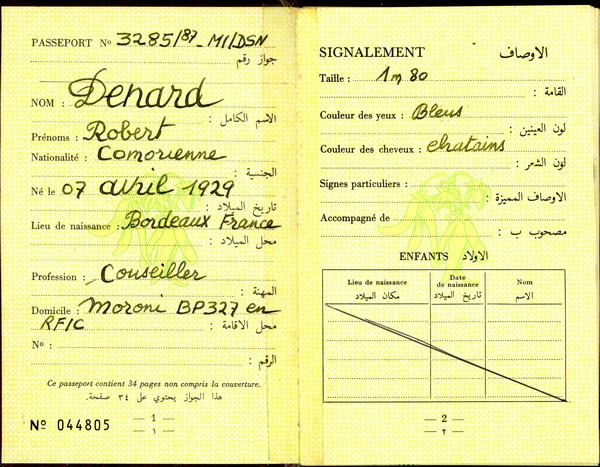 PASSEPORT Nº 3285/87_MI/DSN
جواز رقم
NOM : Denard
الاسم الكامل :
Prénoms : Robert
Nationalité : Comorienne
الجنسية :
Né le 07 avril 1929
تاريخ الميلاد :
Lieu de naissance : Bordeaux France
محل الميلاد :
Profession : Conseiller
المهنة :
Domicile : Moroni BP 327 en
RFIC محل الاقامة :
Nº :
الرقم :
Ce passeport contient 34 pages non compris la couverture.
هذا الجواز يحتوي على ٣٤ صفحة.
Nº 044805
— 1 —
— ١ —
SIGNALEMENT الاوصاف
Taille : 1m80
القامة :
Couleur des yeux : Bleus
لون العينين :
Couleur des cheveux : chatains
لون الشعر :
Signes particuliers :
الاوصاف المميزة :
Accompagné de
مصحوب ب :
ENFANTS الاولاد
Lieu de naissance
مكان الميلاد
Date
de naissance
تاريخ الميلاد
Nom
الاسم
— 2 —
— ٢ —